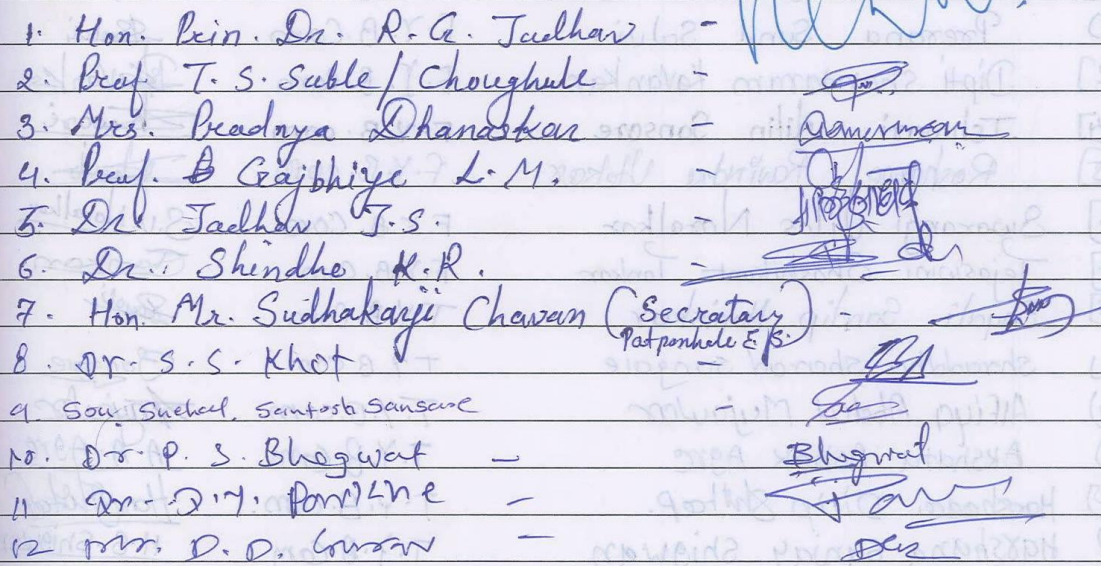 1. Hon. Prin. Dr. R. G. Jadhav -
2. Prof T. S. Sable / Choughule -
3. Mrs. Pradnya Dhanaskar -
4. Prof. Gajbhiye L. M. -
5. Dr. Jadhav J. S -
6. Dr. Shindhe K. R. -
7. Hon. Mr. Sudhakarji Chavan (Secretary) -
Patpanhale E. S. -
8. Dr. S. S. Khot
9 Sou Snehal. Santosh Sansare -
10. Dr. P. S. Bhagwat - Bhagwat
11 Dr. D. Y. -
12 D. D. -